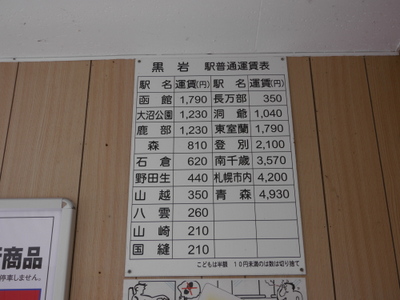 黒岩 駅普通運賃表
駅名 運賃(円) 駅名 運賃(円)
函館 1,790 長万部 350
大沼公園 1,230 洞爺 1,040
鹿部 1,230 東室蘭 1,790
森 810 登別 2,100
石倉 620 南千歳 3,570
野田生 440 札幌市内 4,200
山越 350 青森 4,930
八雲 260
山崎 210
国縫 210
こどもは半額 10円未満のは数は切り捨て
商品
停車しません。